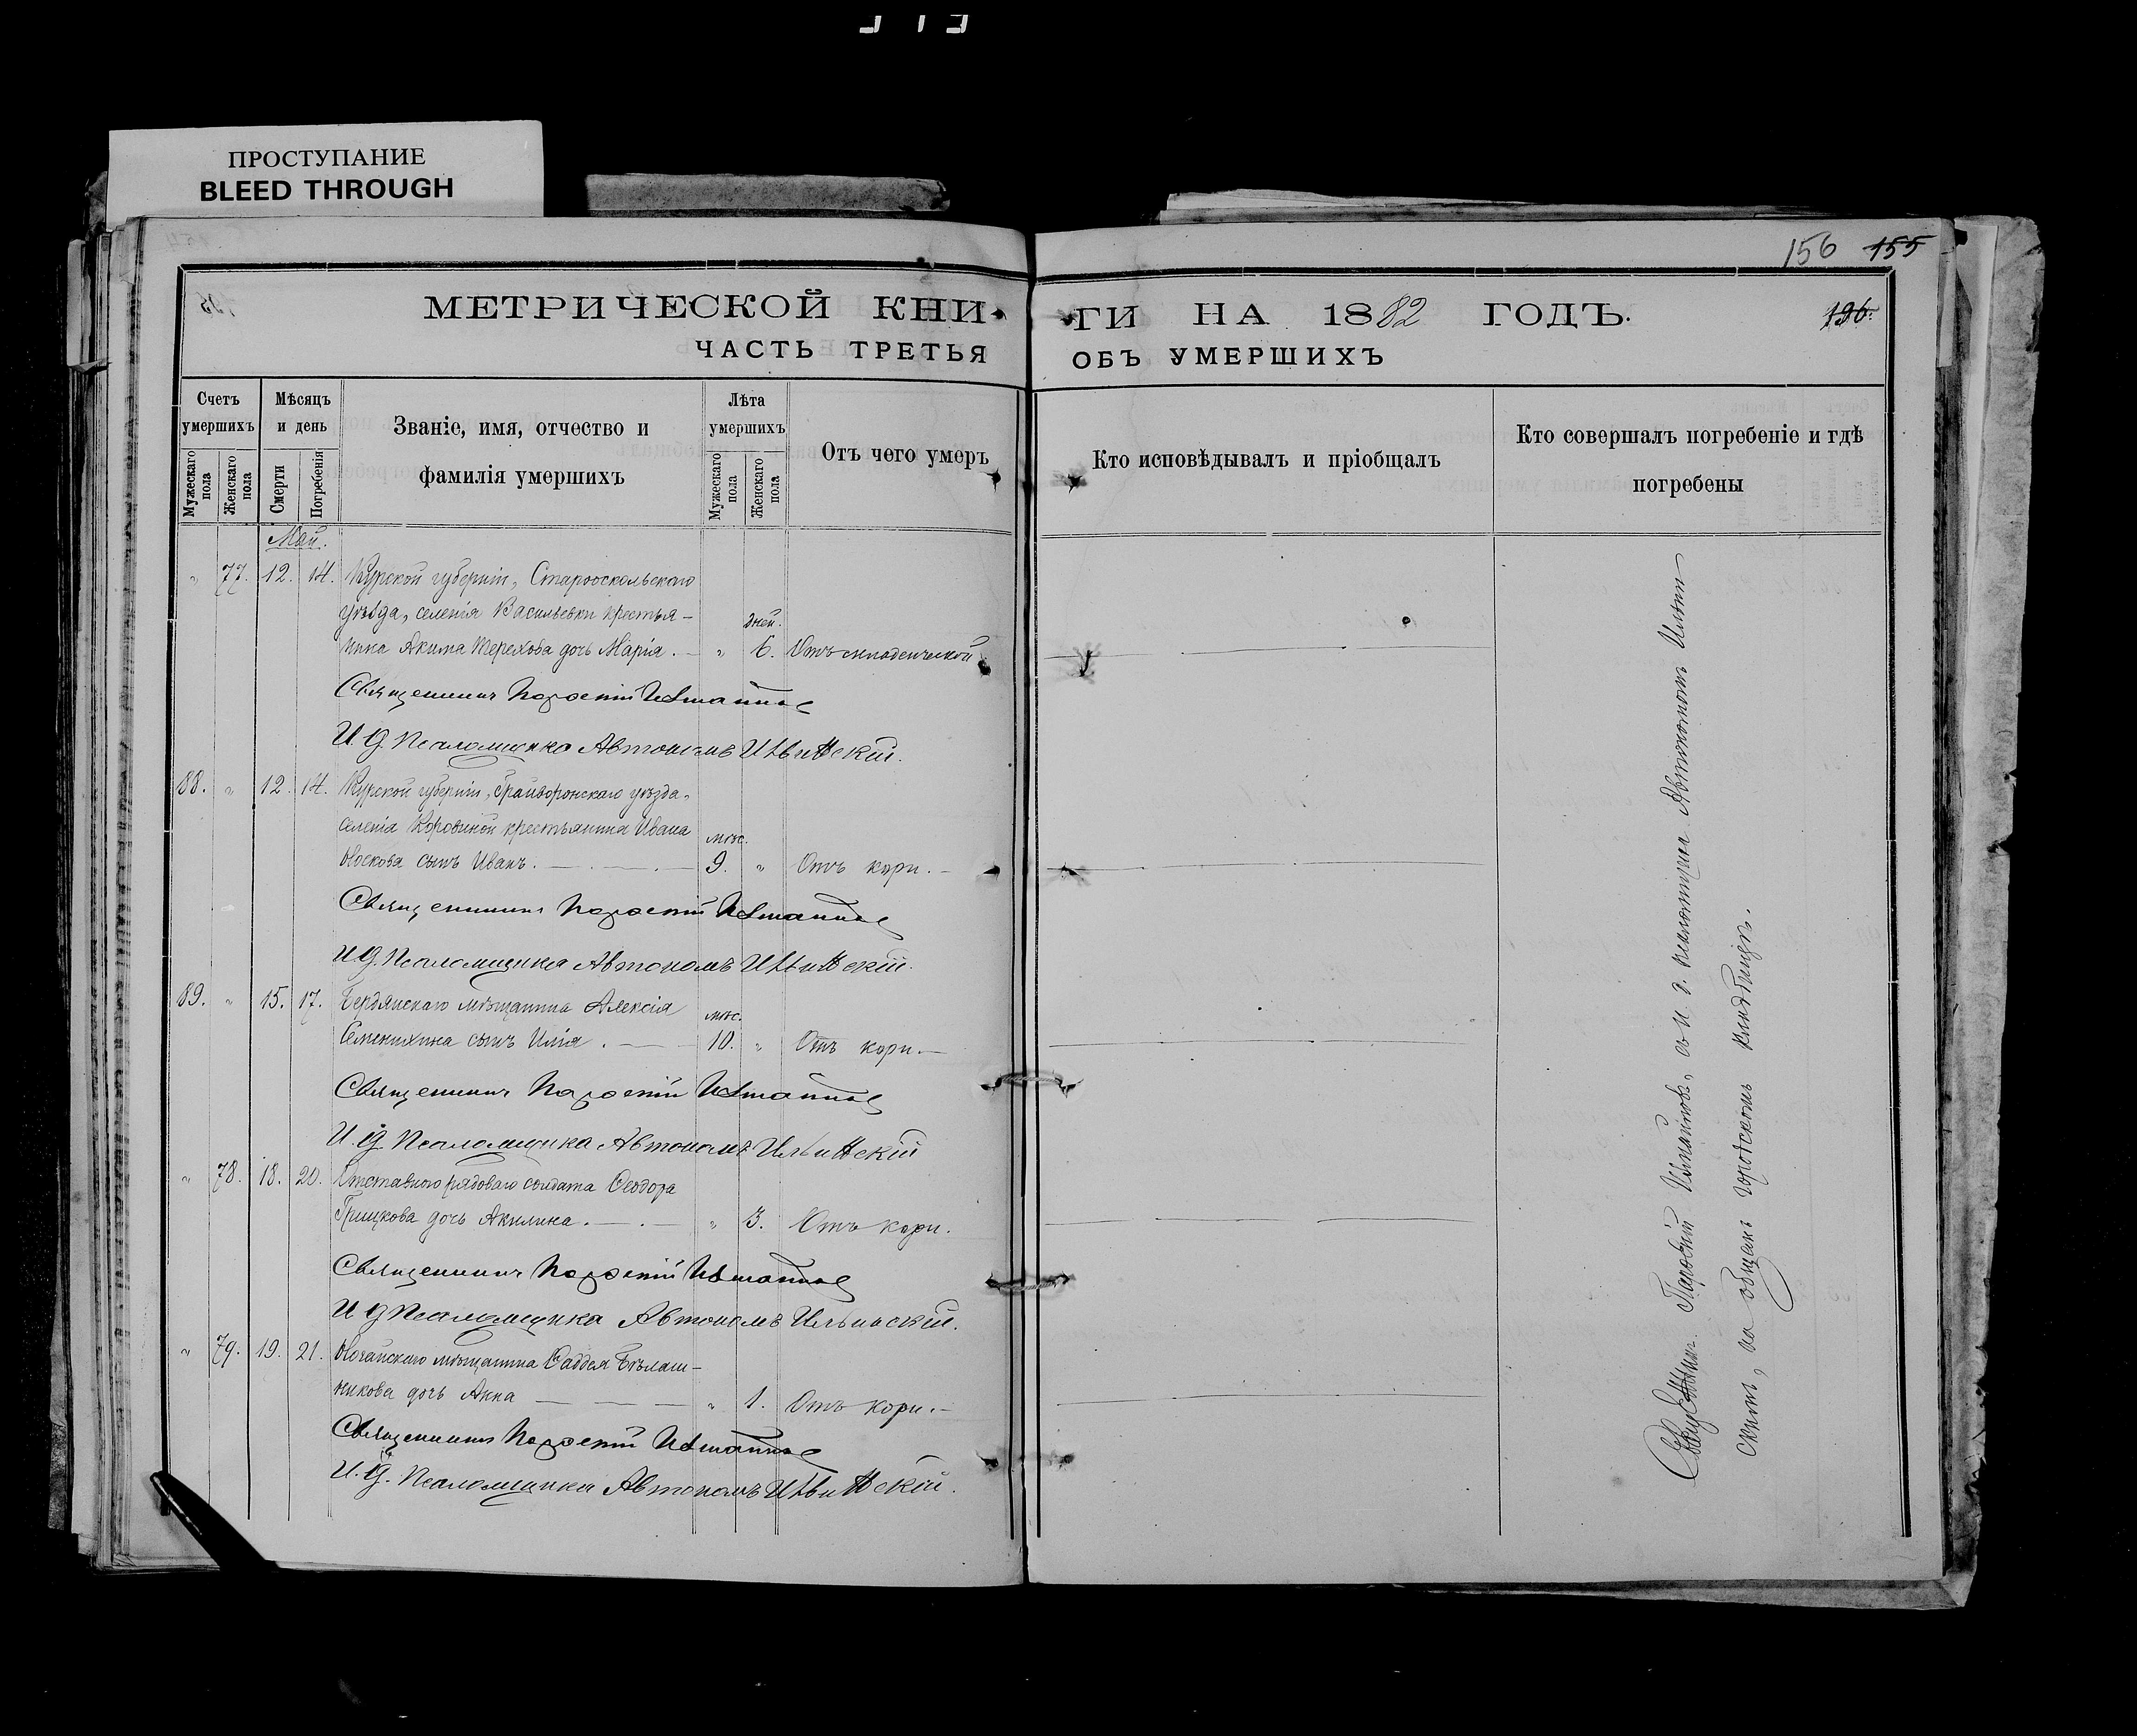 ПРОСТУПАНИЕ
BLEED THROUGH
156 155
МЕТРИЧЕСКОЙ КНИ-
ГИ НА 1882 ГОДЪ.
196.
ЧАСТЬ ТРЕТЬЯ
ОБЪ УМЕРШИХЪ
Счетъ умершихъ
Мужескаго пола
Женскаго пола
Мѣсяцъ и день
Смерти
Погребенія
Званіе, имя, отчество и
фамилія умершихъ
Лѣта умершихъ
Мужескаго пола
Женскаго пола
Отъ чего умеръ
Кто исповѣдывалъ и пріобщалъ
Кто совершалъ погребеніе и гдѣ
погребены
Май.
" 77. 12. 14. Курской губерніи, Старооскольскаго
уѣзда, селенія Васильевки крестья-
нина Акима Терехова дочь Марія. — " дней. 6. Отъ младенческой
Священникъ
И. Д. Псаломщика Автономъ Ильинскій.
88. " 12. 14. Курской губерніи, Грайворонскаго уѣзда,
селенія Коровиной крестьянина Ивана
Носкова сынъ Иванъ. — мѣс. 9. " Отъ кори. —
Священникъ
И. Д. Псаломщика Автономъ Ильинскій.
89. " 15. 17. Бердянскаго мѣщанина Алексія
Семенихина сынъ Илія. — мѣс. 10. " Отъ кори. —
Священникъ
И. Д. Псаломщика Автономъ Ильинскій
" 78. 18. 20. Отставного рядоваго солдата Ѳеодора
Грицкова дочь Акилина. — " 3. Отъ кори.
Священникъ
И. Д. Псаломщика Автономъ Ильинскій.
" 79. 19. 21. Ногайскаго мѣщанина Ѳаддея Бѣлаш-
никова дочь Анна — " 1. Отъ кори. —
Священникъ
И. Д. Псаломщика Автономъ Ильинскій.
Священникъ съ и. д. псаломщика Автономомъ Ильин-
скимъ, на общемъ городскомъ кладбищѣ.